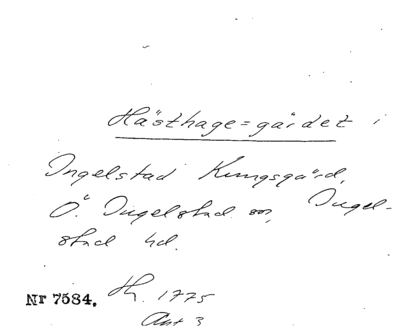 Hästhage=gärdet i
Ingelstad Kungsgård,
Ö. Ingelstad sn, Ingel-
stad hd.
Nr 7584. Th. 1775
Akt 3